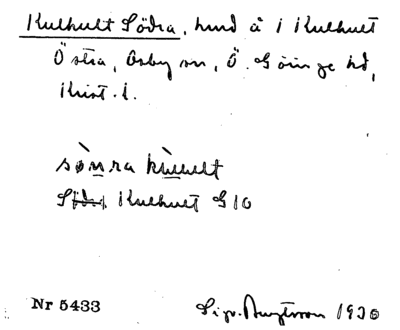 Kulhult Södra, hmd å i Kulhult
Östra, Osby sn, Ö. Göinge hd,
Krist. l.
sönra kulult
Söd. Kulhult G 10
Nr 5433
Sigv. Bengtsson 1930